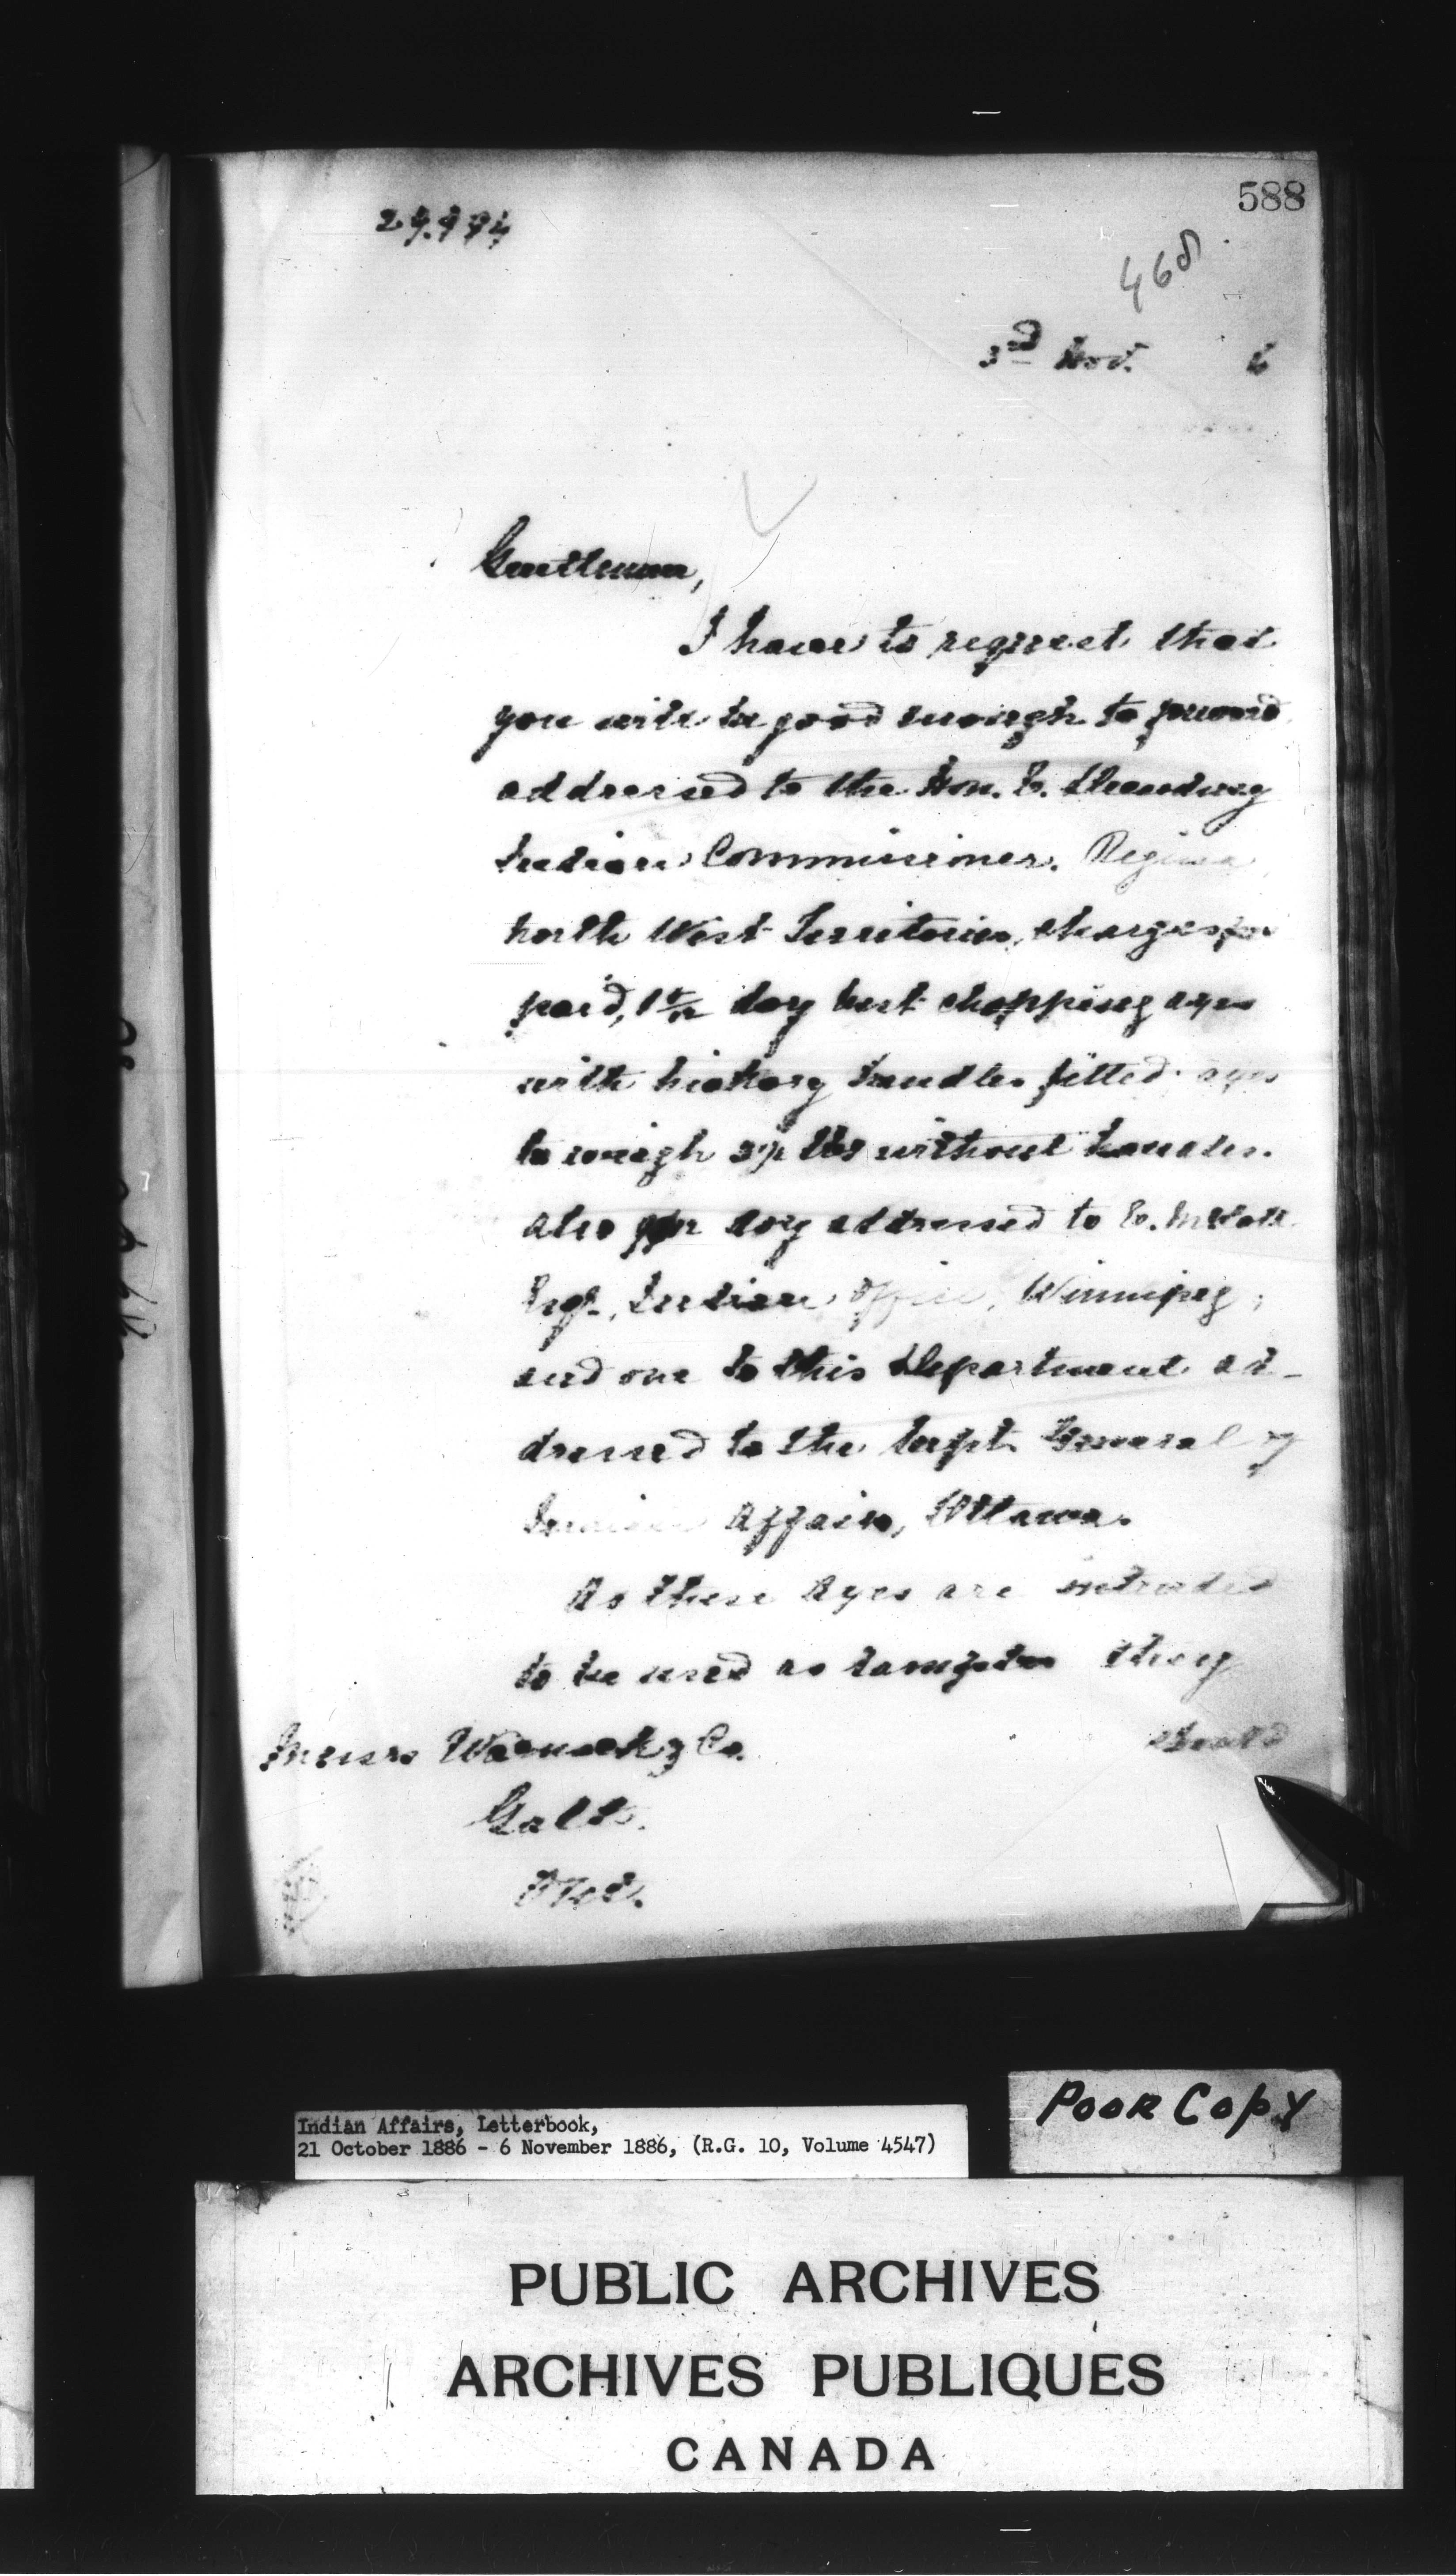 588
468
3rd Nov. 6
Gentlemen,
I have to request that
you will be good enough to forward
addressed to the Hon. E. Dewdney
Indian Commissioner, Regina
North West Territories, charges pre
paid, doz best chopping axes
with hickory handles fitted. axes
to weigh 3½ lbs without handles.
also doz addressed to E. McColl
Esq., Indian Office, Winnipeg,
and one to this Department ad-
dressed to the Supt. General of
Indian Affairs, Ottawa.
As these axes are intended
to be used as samples they
should
Messrs Warnock & Co.
Galt.
Ont.
Indian Affairs, Letterbook,
21 October 1886 - 6 November 1886, (R.G. 10, Volume 4547)
POOR COPY
PUBLIC ARCHIVES
ARCHIVES PUBLIQUES
CANADA